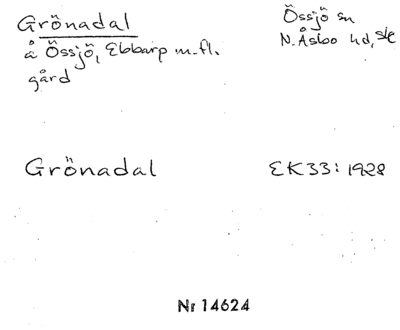 Grönadal
å Össjö, Ebbarp m.fl.
gård
Össjö sn
N. Åsbo hd, Sk
Grönadal
EK33: 1928
Nr 14624